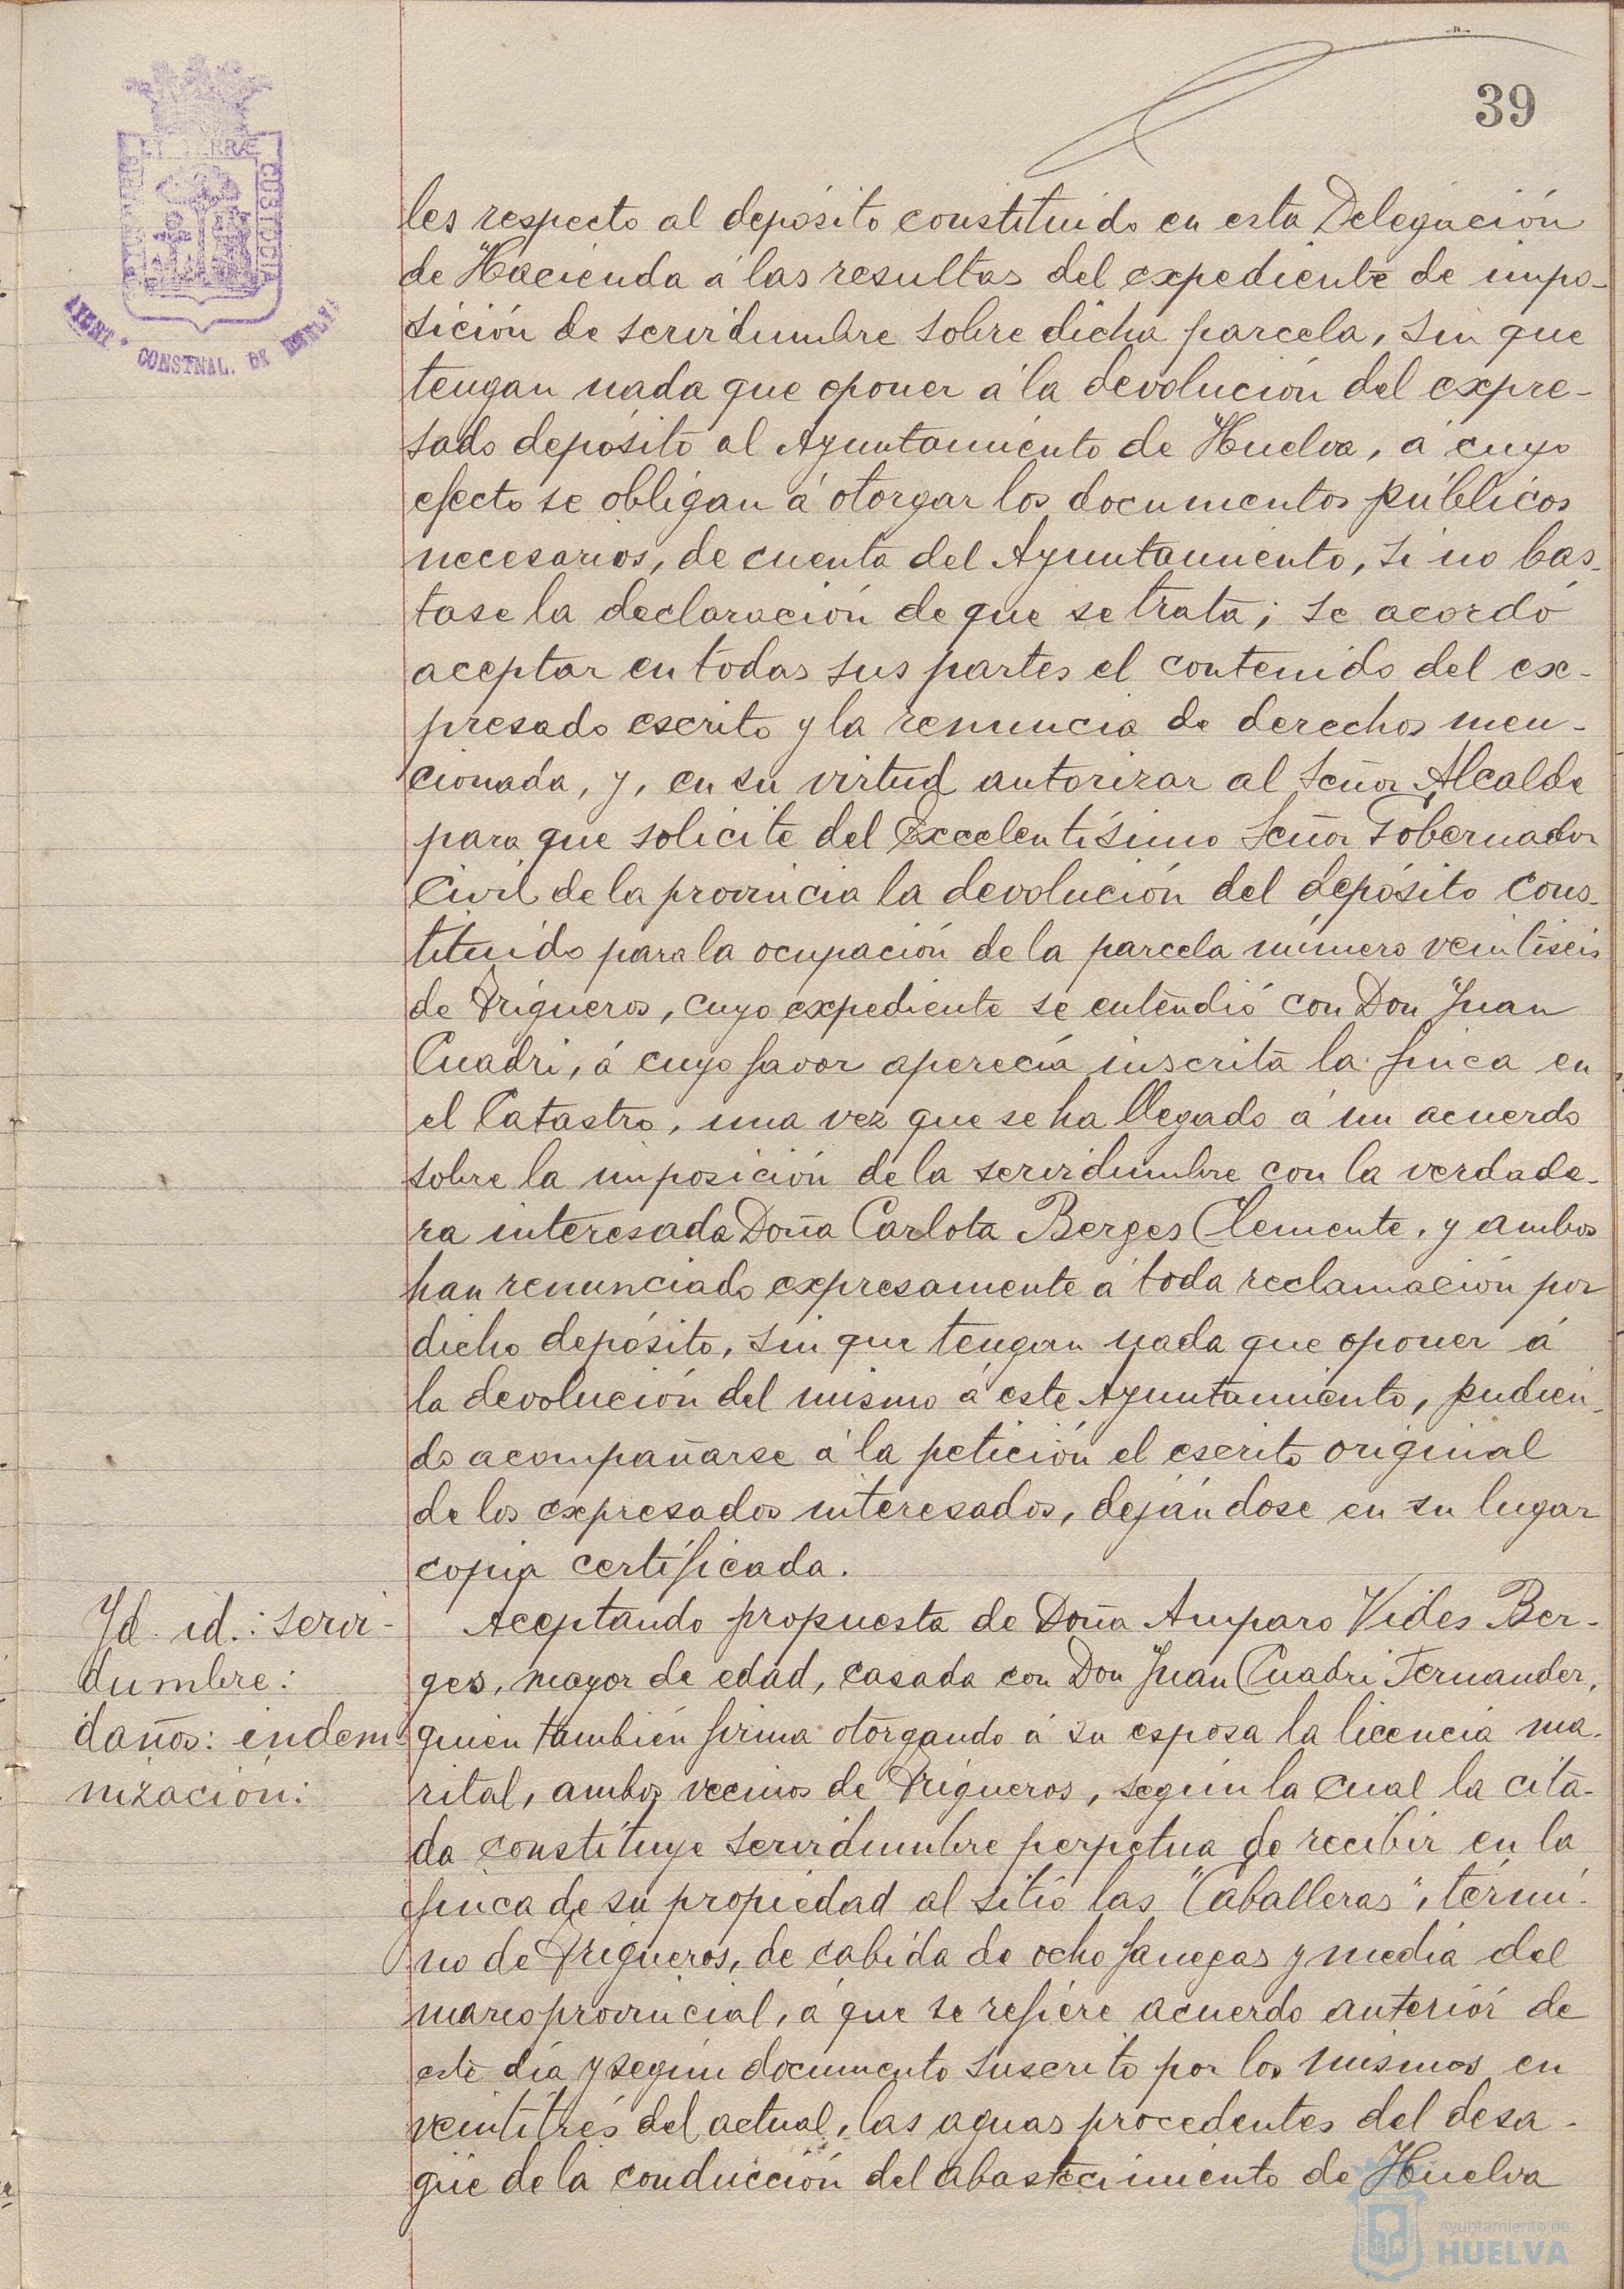 39
ET TERRÆ
CUSTODIA
AYUNT. CONSTNAL. DE HUELVA
les respecto al depósito constituido en esta Delegación
de Hacienda á las resultas del expediente de impo-
sición de servidumbre sobre dicha parcela, sin que
tengan nada que oponer á la devolución del expre-
sado depósito al Ayuntamiento de Huelva, á cuyo
efecto se obligan á otorgar los documentos públicos
necesarios, de cuenta del Ayuntamiento, si no bas-
tase la declaración de que se trata; se acordó
aceptar en todas sus partes el contenido del ex-
presado escrito y la renuncia de derechos men-
cionada, y, en su virtud autorizar al Señor Alcalde
para que solicite del Excelentísimo Señor Gobernador
Civil de la provincia la devolución del depósito cons-
tituido para la ocupación de la parcela número veintiseis
de Trigueros, cuyo expediente se entendió con Don Juan
Cuadri, á cuyo favor aparecía inscrita la finca en
el Catastro, una vez que se ha llegado á un acuerdo
sobre la imposición de la servidumbre con la verdade-
ra interesada Doña Carlota Berges Clemente, y ambos
han renunciado expresamente á toda reclamación por
dicho depósito, sin que tengan nada que oponer á
la devolución del mismo á este Ayuntamiento, pudien-
do acompañarse á la petición el escrito original
de los expresados interesados, dejándose en su lugar
copia certificada.
Yd. id.: servi-
dumbre:
daños: indem-
nización:
Aceptando propuesta de Doña Amparo Vides Ber-
ges, mayor de edad, casada con Don Juan Cuadri Fernandez,
quien también firma otorgando á su esposa la licencia ma-
rital, ambos vecinos de Trigueros, según la cual la cita-
da constituye servidumbre perpetua de recibir en la
finca de su propiedad al sitio las "Caballeras", térmi-
no de Trigueros, de cabida de ocho fanegas y media del
marco provincial, á que se refiere acuerdo anterior de
este día y según documento suscrito por los mismos en
veintitrés del actual, las aguas procedentes del desa-
güe de la conducción del abastecimiento de Huelva
Ayuntamiento de
HUELVA